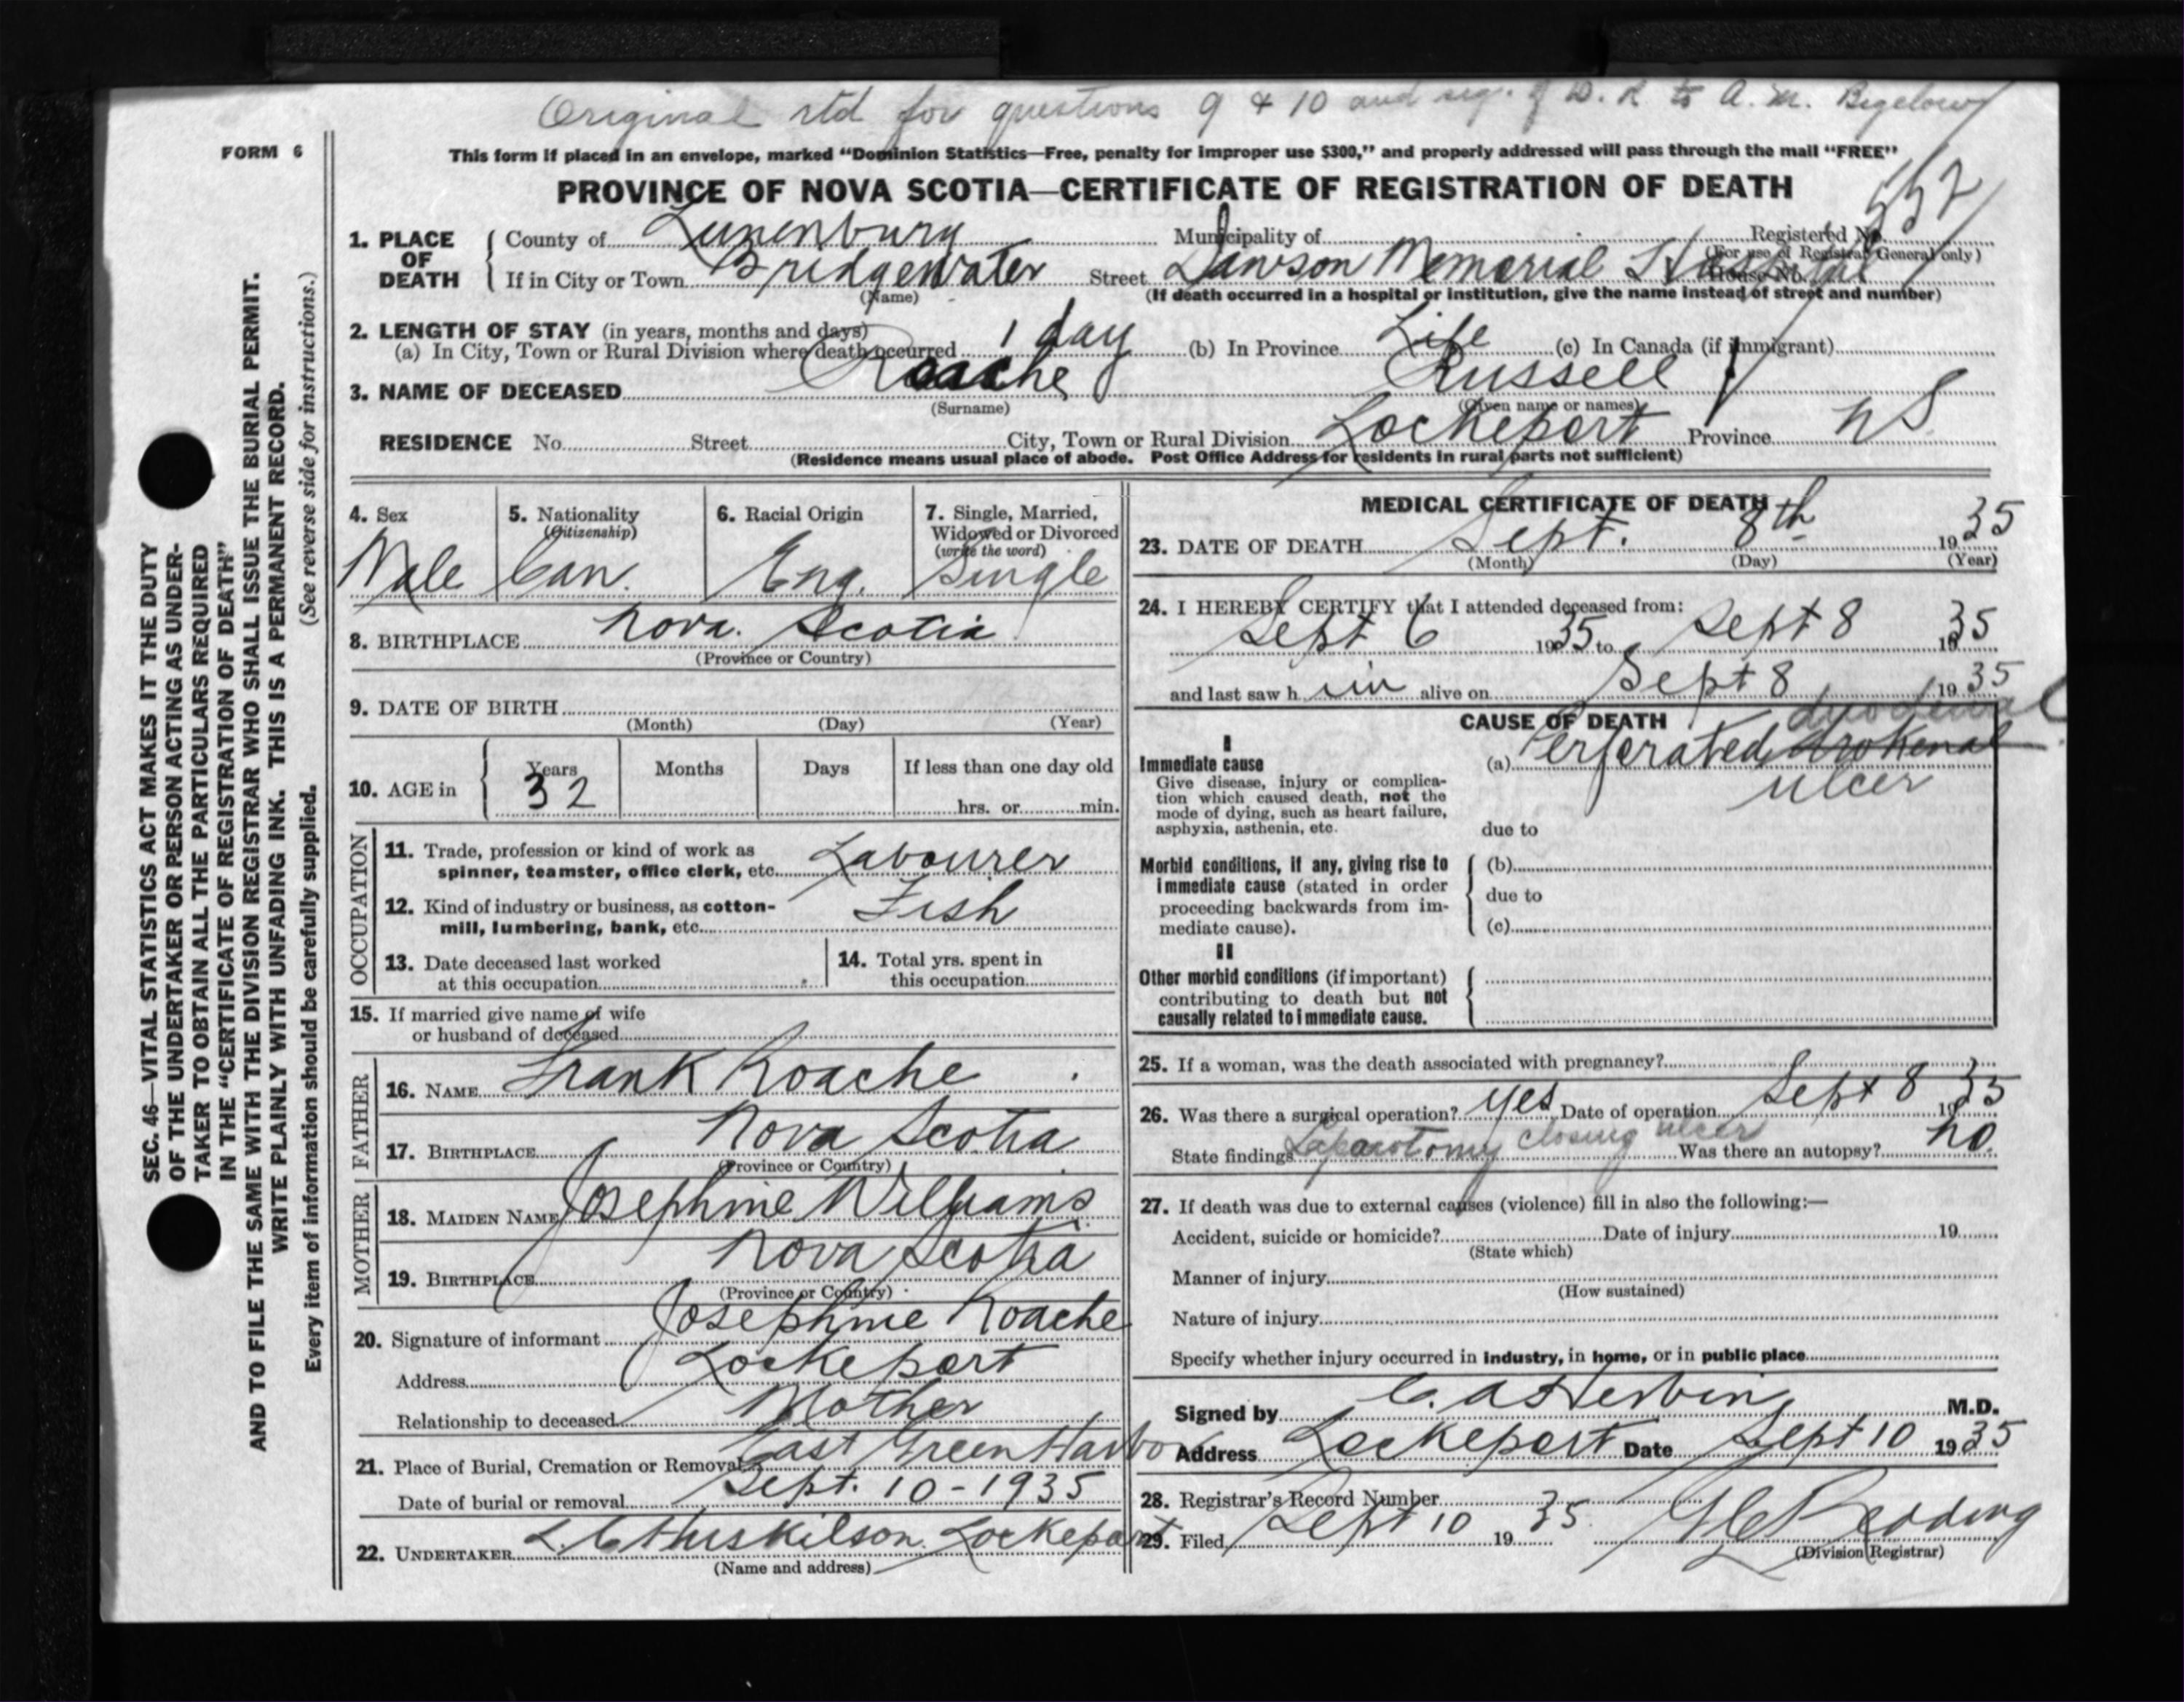 Original rtd for questions 9 & 10 and sig. of D. R to A. M. Bigelow
FORM 6
This form if placed in an envelope, marked "Dominion Statistics—Free, penalty for improper use $300," and properly addressed will pass through the mail "FREE"
PROVINCE OF NOVA SCOTIA—CERTIFICATE OF REGISTRATION OF DEATH
552
1. PLACE OF DEATH
County of Lunenburg Municipality of Registered No.
(For use of Registrar General only)
If in City or Town Bridgewater Street Dawson Memorial Hospital House No.
(Name) (If death occurred in a hospital or institution, give the name instead of street and number)
2. LENGTH OF STAY (in years, months and days)
(a) In City, Town or Rural Division where death occurred 1 day (b) In Province Life (c) In Canada (if immigrant)
3. NAME OF DECEASED Roache Russell
(Surname) (Given name or names)
RESIDENCE No. Street City, Town or Rural Division Lockeport Province NS
(Residence means usual place of abode. Post Office Address for residents in rural parts not sufficient)
4. Sex
Male
5. Nationality
(Citizenship)
Can.
6. Racial Origin
Eng.
7. Single, Married,
Widowed or Divorced
(write the word)
Single
8. BIRTHPLACE Nova Scotia
(Province or Country)
9. DATE OF BIRTH
(Month) (Day) (Year)
10. AGE in
Years Months Days If less than one day old
32 hrs. or min.
OCCUPATION
11. Trade, profession or kind of work as
spinner, teamster, office clerk, etc. Labourer
12. Kind of industry or business, as cotton-
mill, lumbering, bank, etc. Fish
13. Date deceased last worked
at this occupation
14. Total yrs. spent in
this occupation
15. If married give name of wife
or husband of deceased
FATHER
16. NAME Frank Roache
17. BIRTHPLACE Nova Scotia
(Province or Country)
MOTHER
18. MAIDEN NAME Josephine Williams
19. BIRTHPLACE Nova Scotia
(Province or Country)
20. Signature of informant Josephine Roache
Address Lockeport
Relationship to deceased Mother
21. Place of Burial, Cremation or Removal East Green Harbor
Date of burial or removal Sept. 10 - 1935
22. UNDERTAKER L. C Huskilson Lockeport
(Name and address)
MEDICAL CERTIFICATE OF DEATH
23. DATE OF DEATH Sept. 8th 1935
(Month) (Day) (Year)
24. I HEREBY CERTIFY that I attended deceased from:
Sept 6 1935 to Sept 8 1935
and last saw h im alive on Sept 8 1935
CAUSE OF DEATH
duodenal
I
Immediate cause
Give disease, injury or complica-
tion which caused death, not the
mode of dying, such as heart failure,
asphyxia, asthenia, etc.
(a) Perforated
ulcer
due to
Morbid conditions, if any, giving rise to
immediate cause (stated in order
proceeding backwards from im-
mediate cause).
(b)
due to
(c)
II
Other morbid conditions (if important)
contributing to death but not
causally related to immediate cause.
25. If a woman, was the death associated with pregnancy?
26. Was there a surgical operation? yes Date of operation Sept 8 1935
State findings Laparotomy closing ulcer Was there an autopsy? no.
27. If death was due to external causes (violence) fill in also the following:—
Accident, suicide or homicide? Date of injury 19
(State which)
Manner of injury
(How sustained)
Nature of injury
Specify whether injury occurred in industry, in home, or in public place
Signed by C. A Herbin M.D.
Address Lockeport Date Sept 10 1935
28. Registrar's Record Number
29. Filed Sept 10 1935 Redding
(Division Registrar)
SEC. 46—VITAL STATISTICS ACT MAKES IT THE DUTY
OF THE UNDERTAKER OR PERSON ACTING AS UNDER-
TAKER TO OBTAIN ALL THE PARTICULARS REQUIRED
IN THE "CERTIFICATE OF REGISTRATION OF DEATH"
AND TO FILE THE SAME WITH THE DIVISION REGISTRAR WHO SHALL ISSUE THE BURIAL PERMIT.
WRITE PLAINLY WITH UNFADING INK. THIS IS A PERMANENT RECORD.
Every item of information should be carefully supplied. (See reverse side for instructions.)